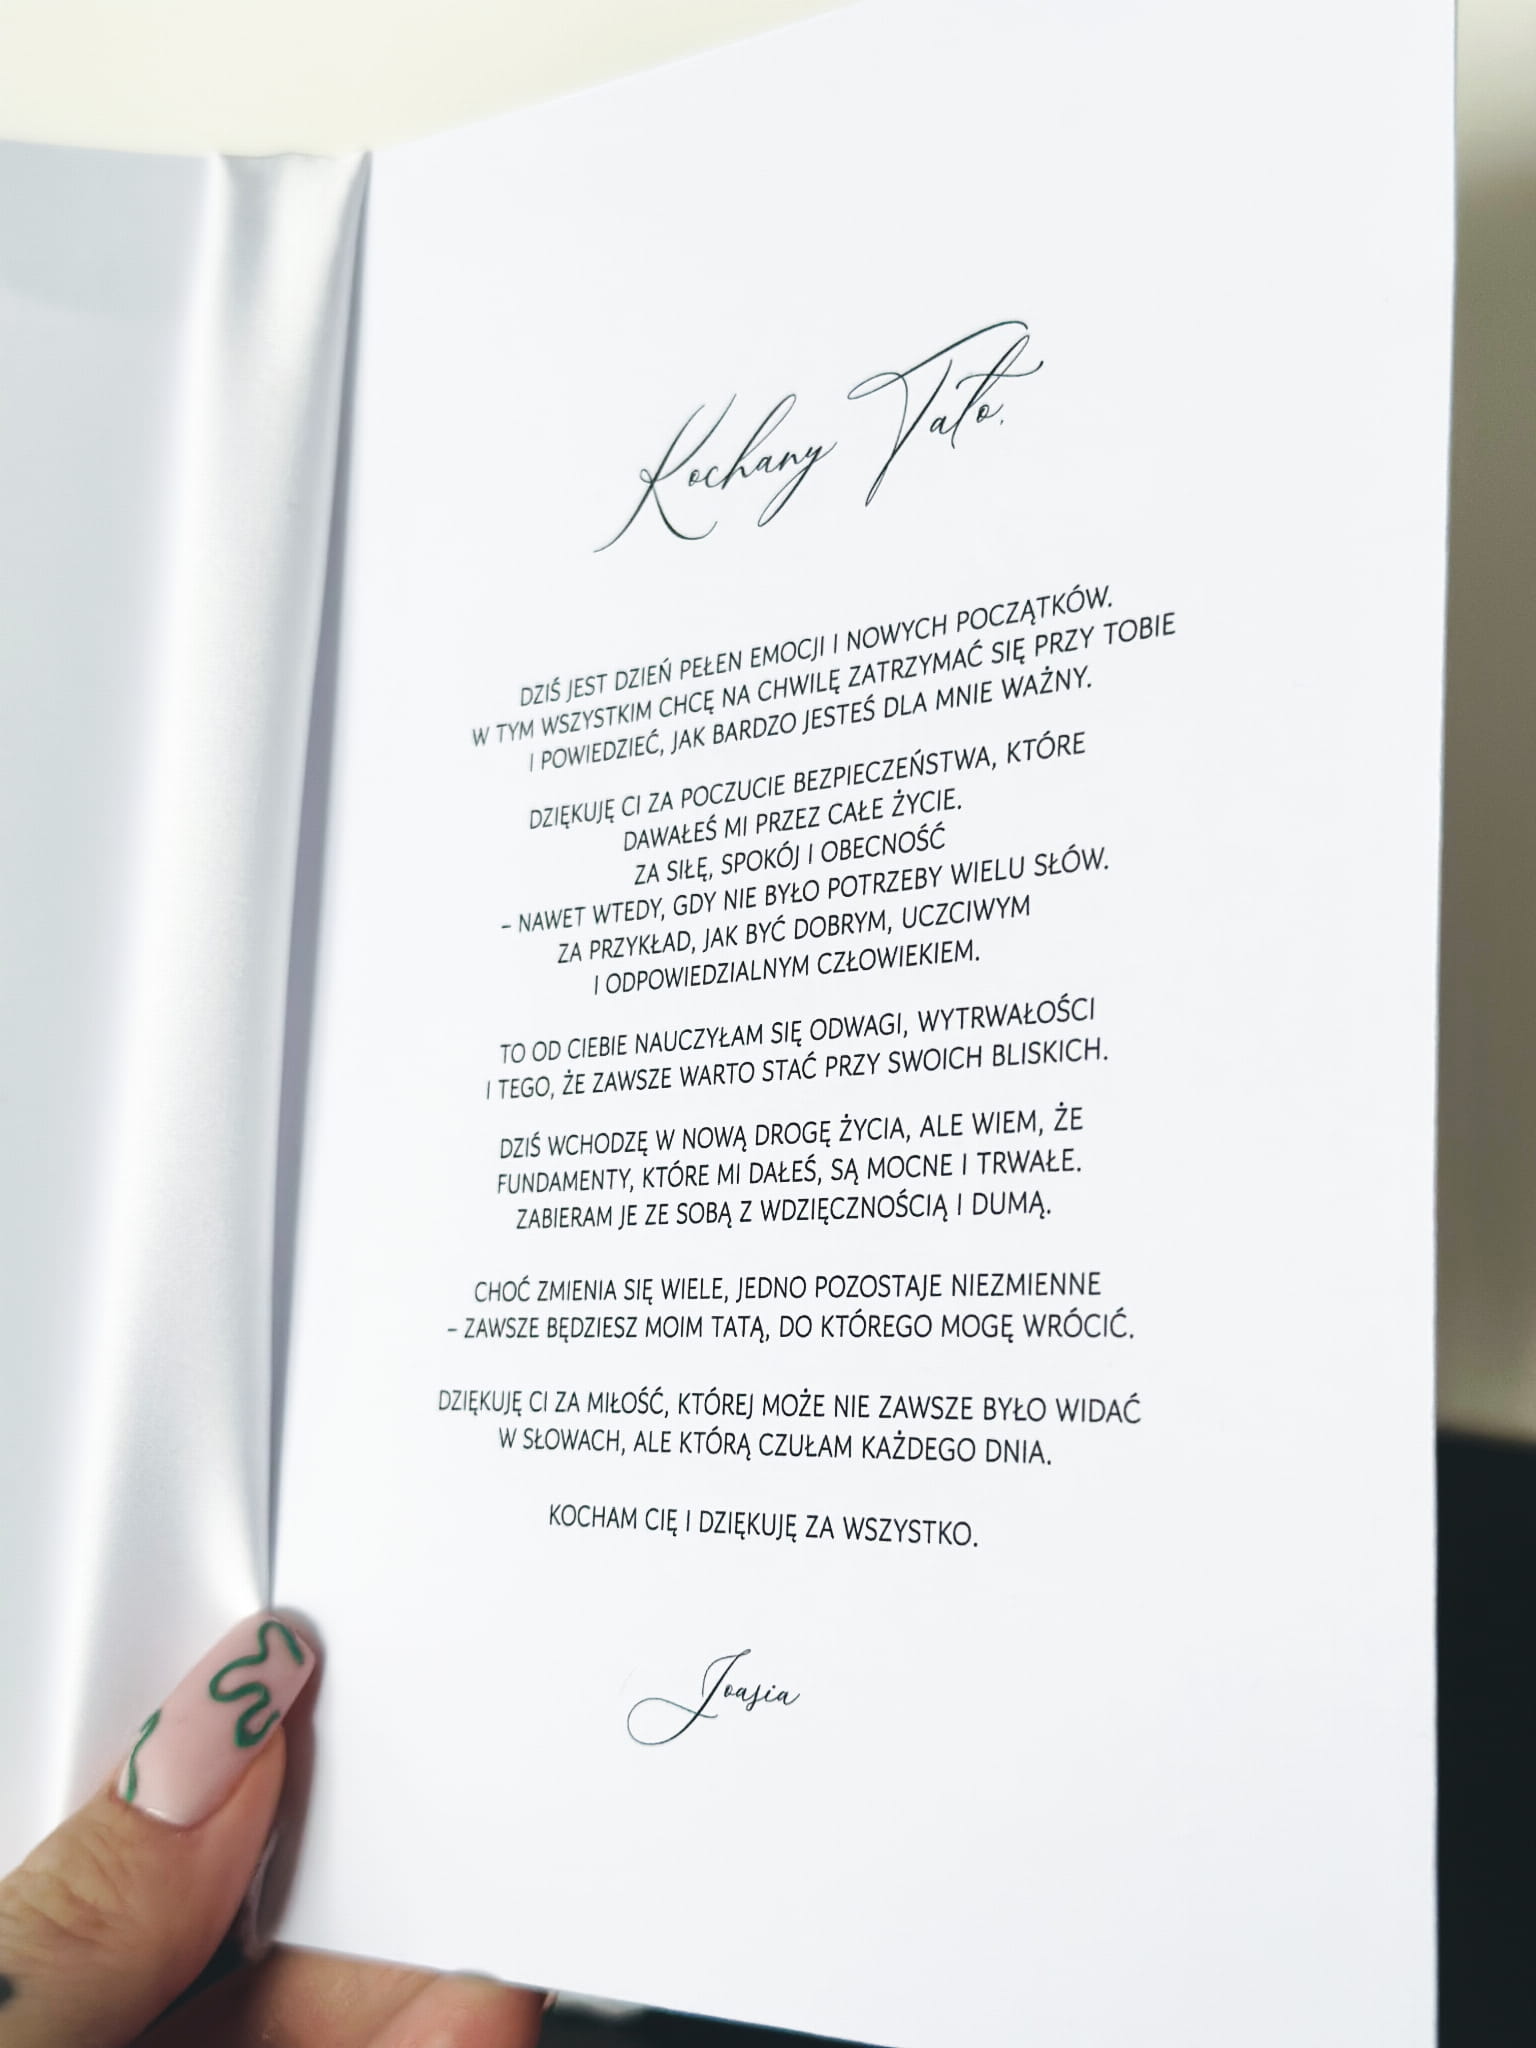 Kochany Tato,
DZIŚ JEST DZIEŃ PEŁEN EMOCJI I NOWYCH POCZĄTKÓW.
W TYM WSZYSTKIM CHCĘ NA CHWILĘ ZATRZYMAĆ SIĘ PRZY TOBIE
I POWIEDZIEĆ, JAK BARDZO JESTEŚ DLA MNIE WAŻNY.
DZIĘKUJĘ CI ZA POCZUCIE BEZPIECZEŃSTWA, KTÓRE
DAWAŁEŚ MI PRZEZ CAŁE ŻYCIE.
ZA SIŁĘ, SPOKÓJ I OBECNOŚĆ
– NAWET WTEDY, GDY NIE BYŁO POTRZEBY WIELU SŁÓW.
ZA PRZYKŁAD, JAK BYĆ DOBRYM, UCZCIWYM
I ODPOWIEDZIALNYM CZŁOWIEKIEM.
TO OD CIEBIE NAUCZYŁAM SIĘ ODWAGI, WYTRWAŁOŚCI
I TEGO, ŻE ZAWSZE WARTO STAĆ PRZY SWOICH BLISKICH.
DZIŚ WCHODZĘ W NOWĄ DROGĘ ŻYCIA, ALE WIEM, ŻE
FUNDAMENTY, KTÓRE MI DAŁEŚ, SĄ MOCNE I TRWAŁE.
ZABIERAM JE ZE SOBĄ Z WDZIĘCZNOŚCIĄ I DUMĄ.
CHOĆ ZMIENIA SIĘ WIELE, JEDNO POZOSTAJE NIEZMIENNE
– ZAWSZE BĘDZIESZ MOIM TATĄ, DO KTÓREGO MOGĘ WRÓCIĆ.
DZIĘKUJĘ CI ZA MIŁOŚĆ, KTÓREJ MOŻE NIE ZAWSZE BYŁO WIDAĆ
W SŁOWACH, ALE KTÓRĄ CZUŁAM KAŻDEGO DNIA.
KOCHAM CIĘ I DZIĘKUJĘ ZA WSZYSTKO.
Joasia